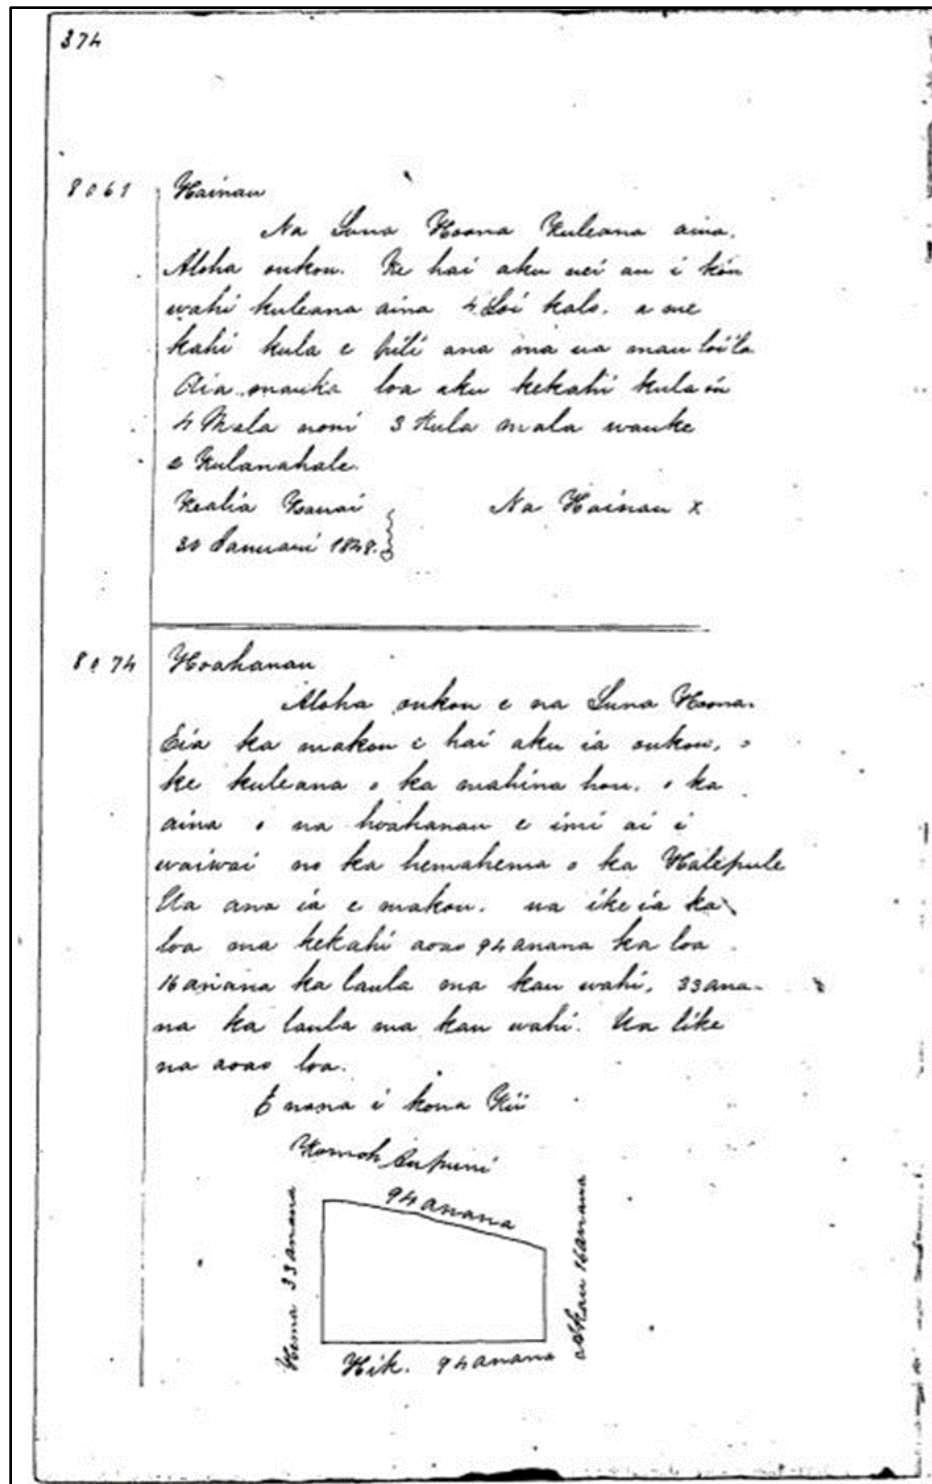 374
8061 Hainau
Na Luna Hoona Kuleana aina.
Aloha oukou. Ke hai aku nei au i kóu
wahi kuleana aina 4 Loi kalo. a me
kahi kula e pili ana ma ua mau loi la
Aia mauka loa aku kekahi kula óu
4 Mala noni 3 Kula mala wauke
e Kulanahale.
Kealia Kauai Na Hainau x
30 Januari 1848.
8074 Hoahanau
Aloha oukou e na Luna Hoona.
Eia ka makou e hai aku ia oukou, o
ke kuleana o ka mahina hou. o ka
aina o na hoahanau e imi ai i
waiwai no ka hemahema o ka Halepule
Ua ana ia e makou. ua ike ia ka
loa ma kekahi aoao 94 anana ka loa
16 anana ka laula ma kau wahi, 33 ana-
na ka laula ma kau wahi. Ua like
na aoao loa.
E nana i kona Kii
Komoh Aupuni
94 anana
Hema 33 anana
Akau 16 anana
Hik. 94 anana